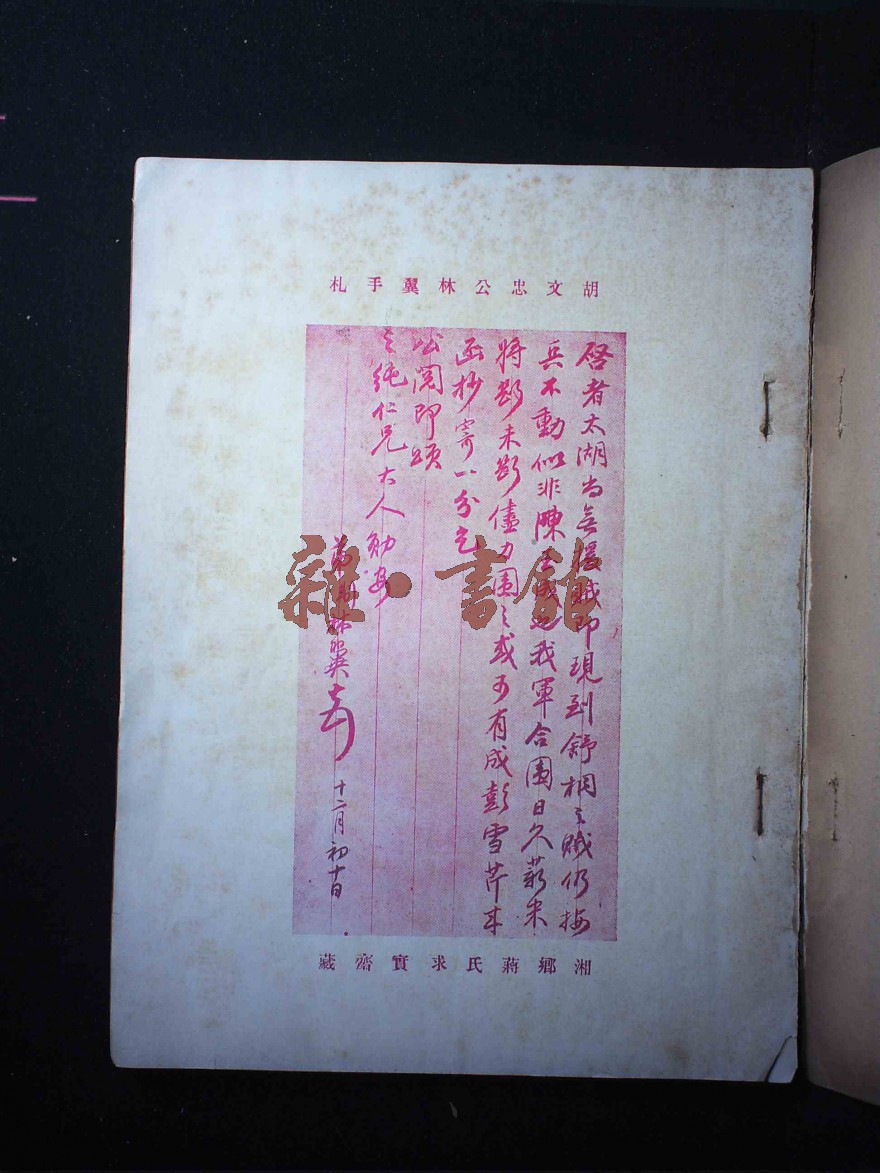 胡文忠公林翼手札
啓者太湖尚無援賊即現到舒桐之賊仍按
兵不動似非陳我軍合圍日久薪米
將斷未斷儘力圍之或可有成彭雪芹來
函抄寄一分乞
公閱即頌
之純仁兄大人勛安
弟林翼頓首 十二月初十日
湘鄉蔣氏求實齋藏
雜·書館